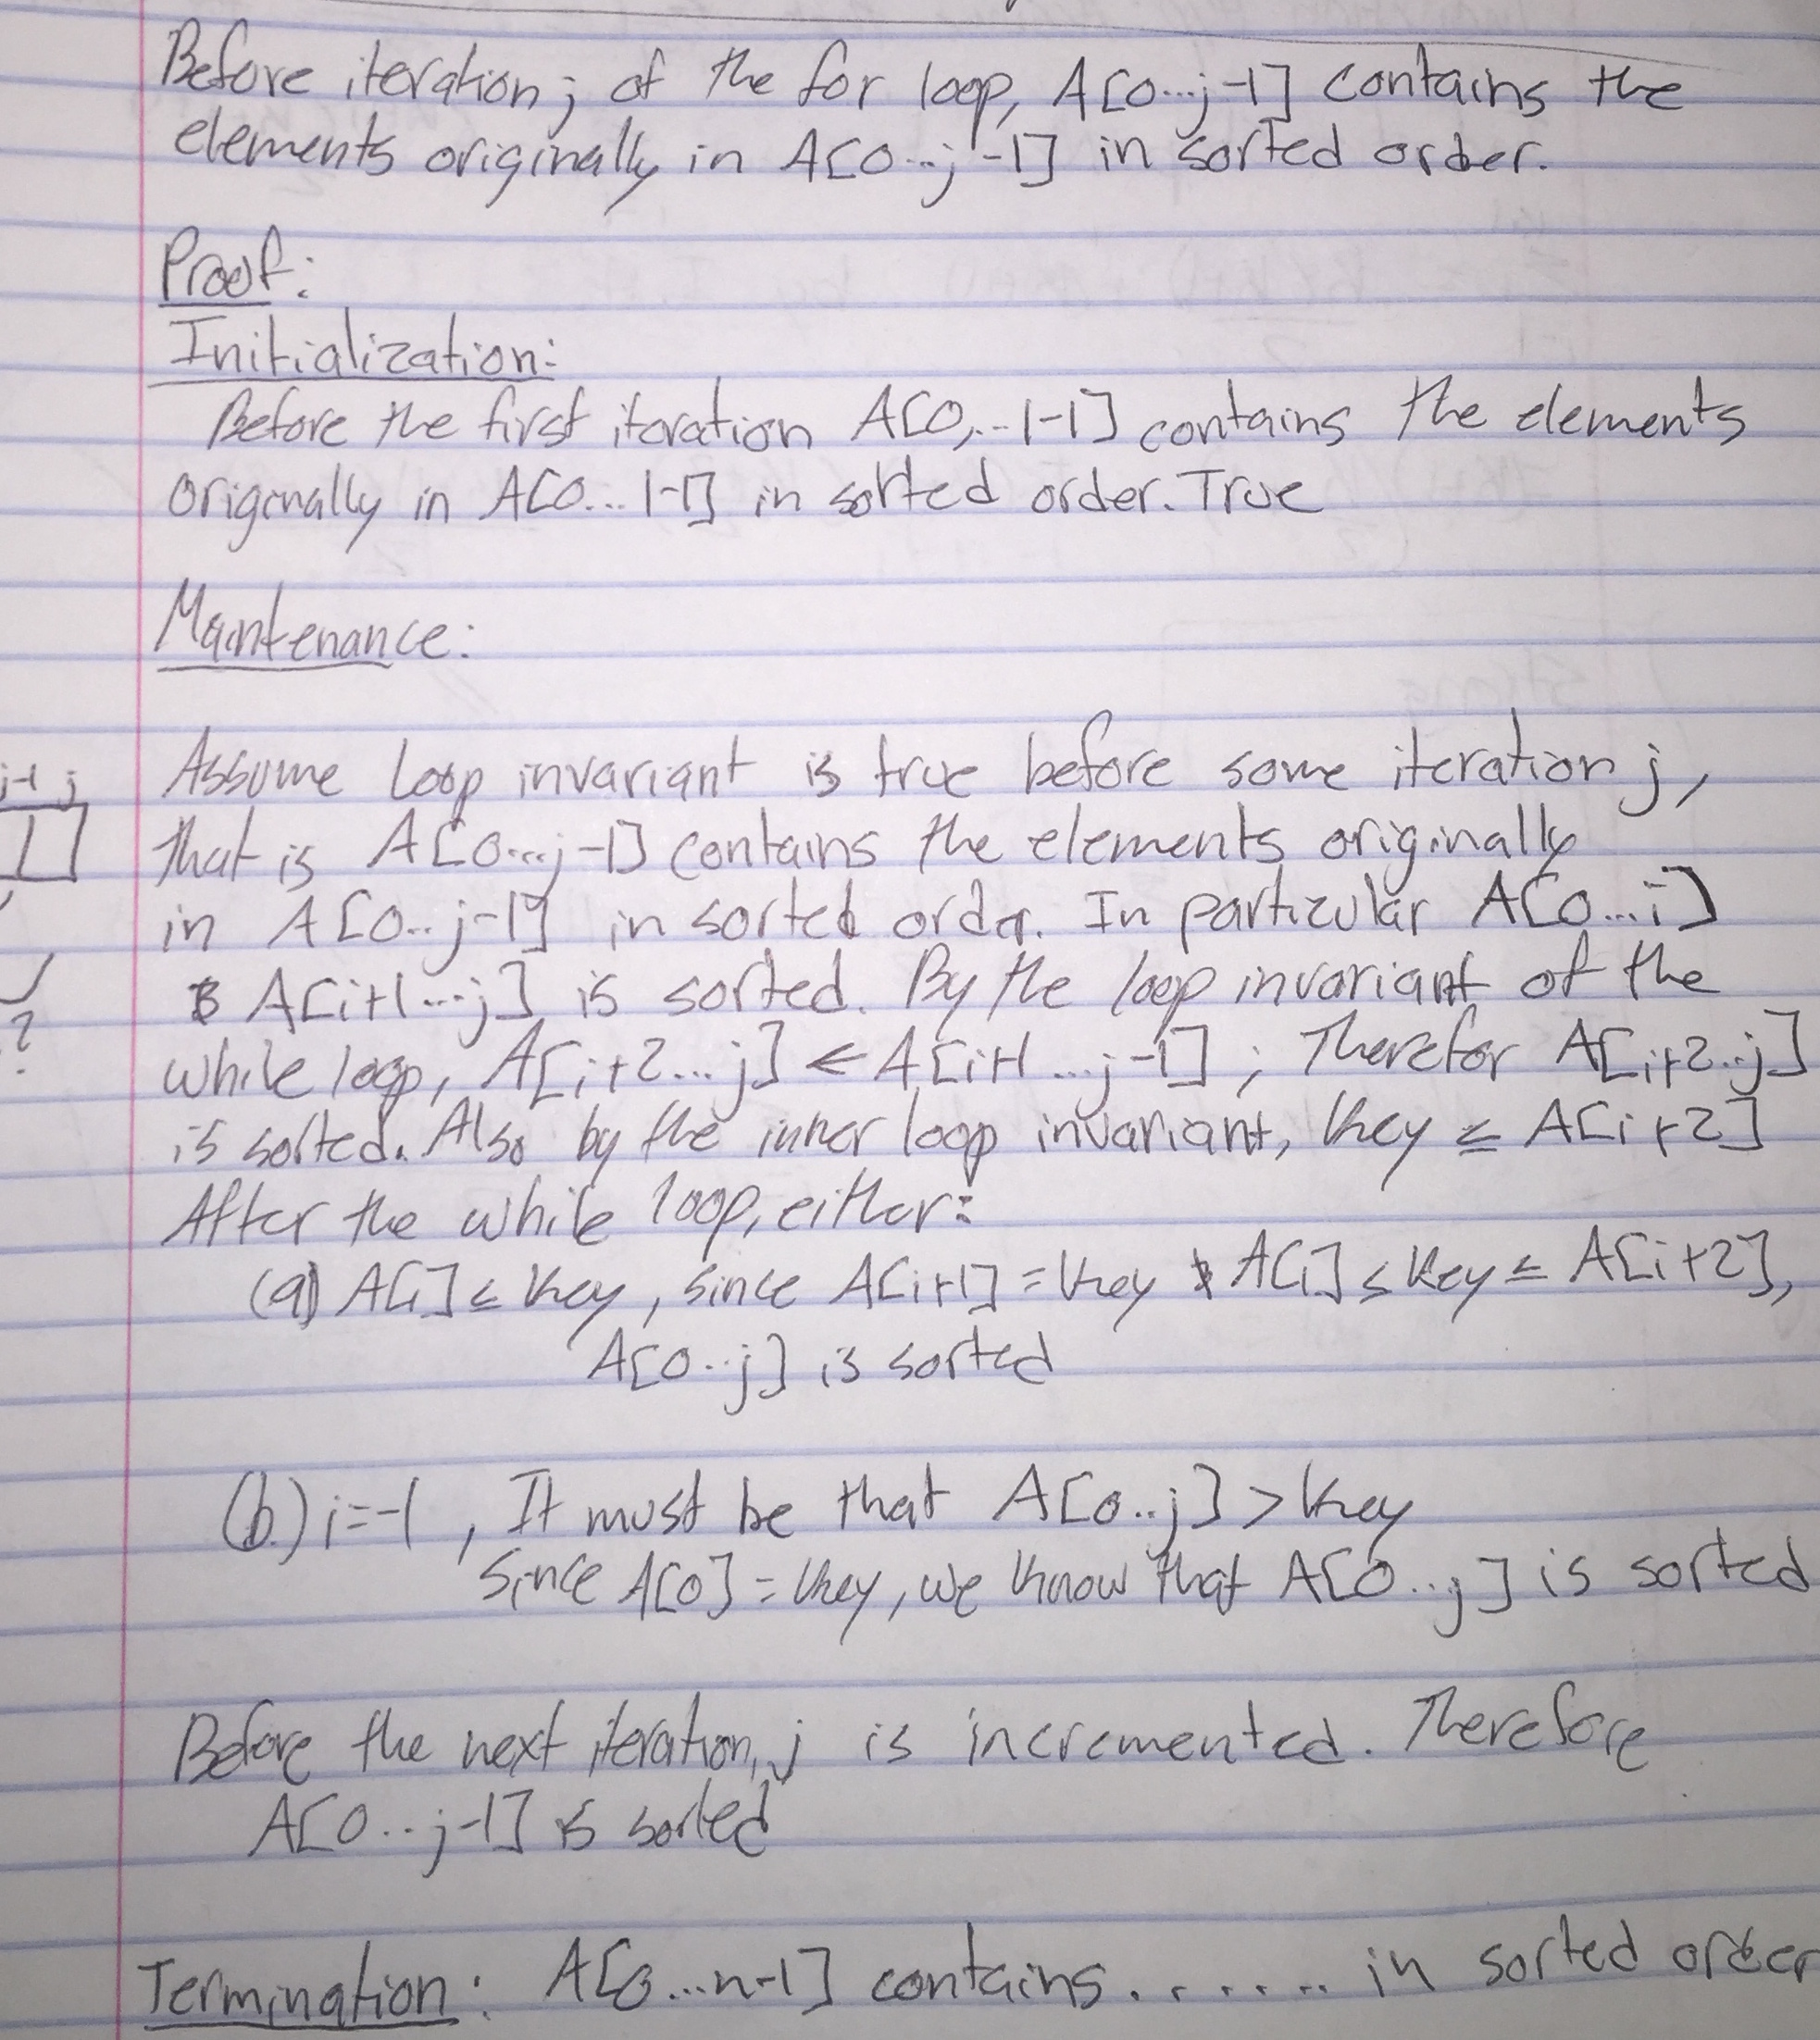 Before iteration j of the for loop, A[0...j-1] contains the
elements originally in A[0...j-1] in sorted order.
Proof:
Initialization:
Before the first iteration A[0,..1-1] contains the elements
originally in A[0...1-1] in sorted order. True
Maintenance:
Assume loop invariant is true before some iteration j,
that is A[0...j-1] contains the elements originally
in A[0..j-1] in sorted order. In particular A[0...i]
& A[i+1...j] is sorted. By the loop invariant of the
while loop, A[i+2...j] ← A[i+1...j-1]; Therefor A[i+2..j]
is sorted. Also by the inner loop invariant, key ≤ A[i+2]
After the while loop, either:
(a) A[i] ≤ key, since A[i+1] = key & A[i] ≤ key ≤ A[i+2],
A[0..j] is sorted
(b.) i=-1, It must be that A[0..j] > key
Since A[0] = key, we know that A[0..j] is sorted
Before the next iteration, j is incremented. Therefore
A[0...j-1] is sorted
Termination: A[0...n-1] contains....... in sorted order
j-1 j
?